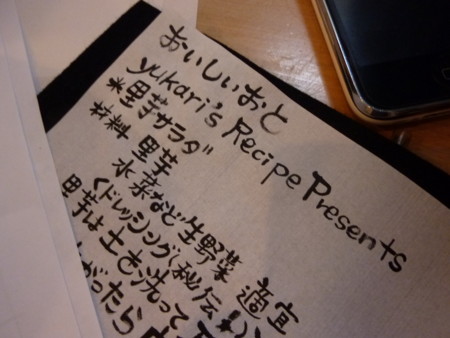 おいしいおと
yukari's Recipe Presents
*里芋サラダ
材料 里芋
水菜など生野菜 適宜
くドレッシング(秘伝!)
里芋は土を洗って
がったら